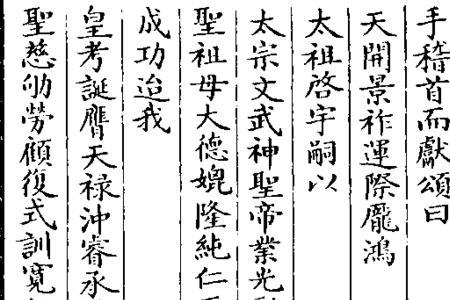 手稽首而獻頌曰
天開景祚運際龐鴻
太祖啓宇嗣以
太宗文武神聖帝業光
聖祖母大德媲隆純仁
成功迨我
皇考誕膺天祿沖睿承
聖慈劬勞顧復式訓寬